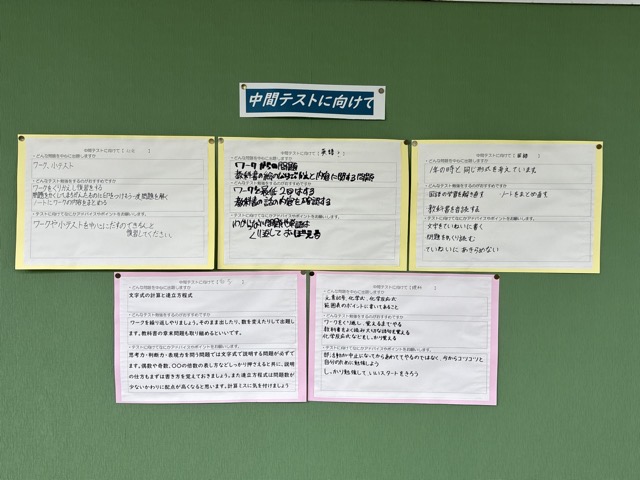 中間テストに向けて
中間テストに向けて【社会】
・どんな問題を中心に出題しますか
ワーク、小テスト
・どんなテスト勉強をするのがおすすめですか
ワークをくりかえし復習をする
ノートにワークの内容をまとめる
・テストに向けてなにかアドバイスやポイントをお願いします。
ワークや小テストを中心にだすのできちんと
復習してください。
中間テストに向けて【英語】
・どんな問題を中心に出題しますか
ワーク
教科書の
内容に関する問題
・どんなテスト勉強をするのがおすすめですか
ワークを最低2回はする
教科書の話の内容を確認する
・テストに向けてなにかアドバイスやポイントをお願いします。
中間テストに向けて【国語】
・どんな問題を中心に出題しますか
1年の時と同じ形式を考えています。
・どんなテスト勉強をするのがおすすめですか
国語の学習を解き直す ノートまとめ直す
教科書を音読する
・テストに向けてなにかアドバイスやポイントをお願いします。
文字をていねいに書く
問題をよく読む
ていねいに あきらめない
中間テストに向けて【数学】
・どんな問題を中心に出題しますか
文字式の計算と連立方程式
・どんなテスト勉強をするのがおすすめですか
ワークを繰り返しやりましょう。そのまま出したり、数を変えたりして出題し
ます。教科書の章末問題も取り組めるといいです。
・テストに向けてなにかアドバイスやポイントをお願いします。
思考力・判断力・表現力を問う問題では文字式で説明する問題が必ずで
ます。偶数や奇数、〇〇の倍数の表し方などしっかり押さえると共に、説明
の仕方もまずは書き方を覚えておきましょう。また連立方程式は問題数が
少ないかわりに配点が高くなると思います。計算ミスに気を付けましょう
中間テストに向けて【理科】
・どんな問題を中心に出題しますか
元素記号、化学式、化学反応式
範囲表のポイントに書いてあること
・どんなテスト勉強をするのがおすすめですか
ワークをくり返し、覚えるまでやる
教科書をよく読み大切な語句を覚える
化学反応式などをしっかり覚える
・テストに向けてなにかアドバイスやポイントをお願いします。
部活動が中止になってからあわててやるのではなく、今からコツコツと
自分のために勉強しよう
しっかり勉強して、いいスタートをきろう